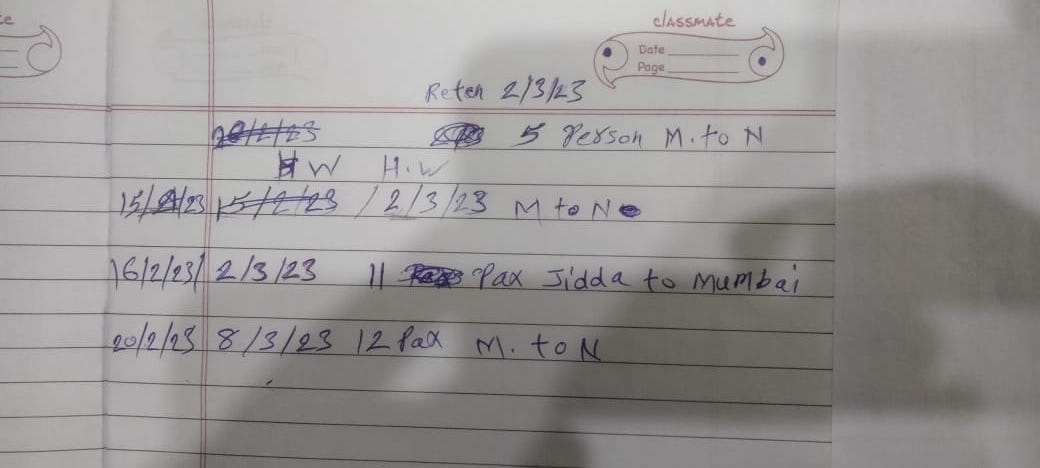 classmate
Date
Page
Reten 2/3/23
20/2/23 5 Person M. to N
H W H.W
15/2/23 15/2/23 / 2/3/23 M to N
16/2/23/ 2/3/23 11 Pax Jidda to Mumbai
20/2/23 8/3/23 12 Pax M. to N